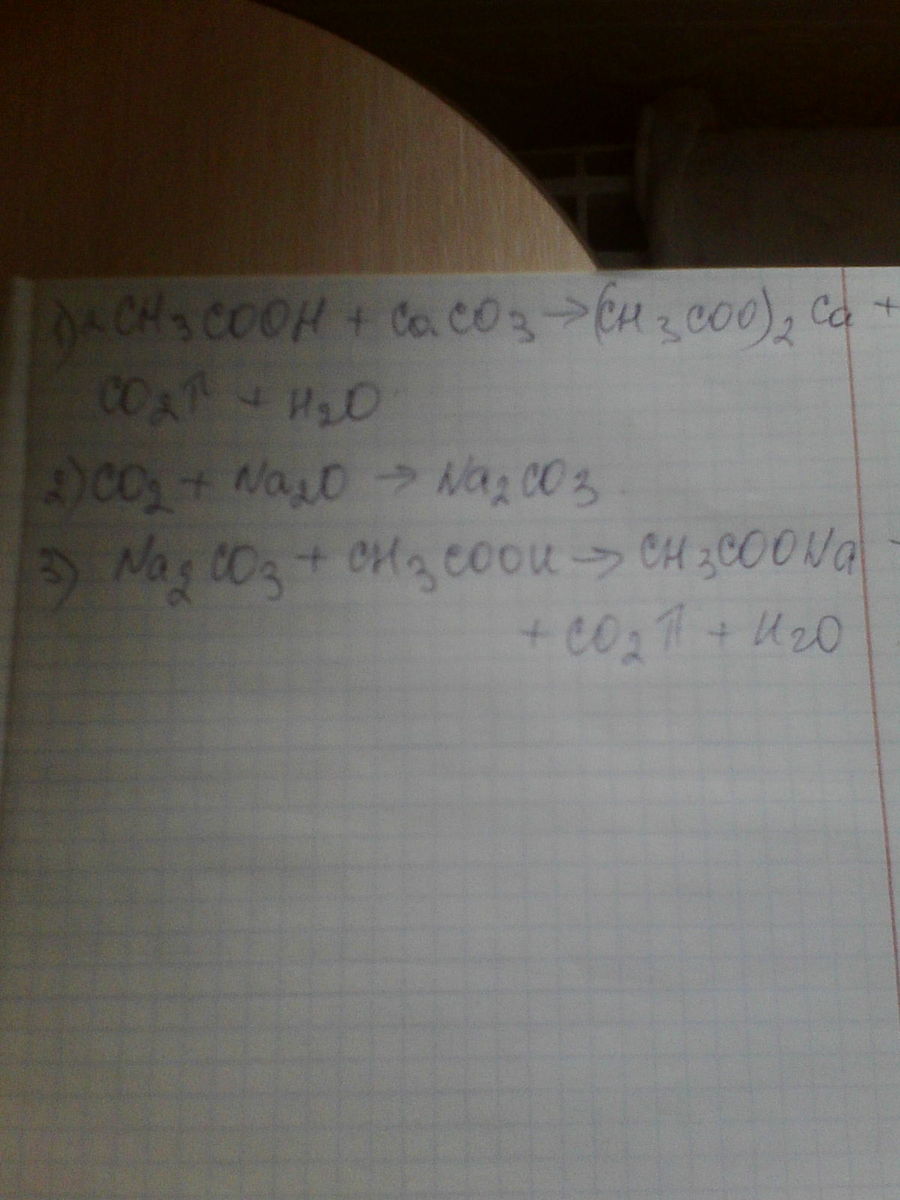 1) 2CH₃COOH + CaCO₃ → (CH₃COO)₂Ca +
CO₂↑ + H₂O
2) CO₂ + Na₂O → Na₂CO₃
3) Na₂CO₃ + CH₃COOH → CH₃COONa
+ CO₂↑ + H₂O